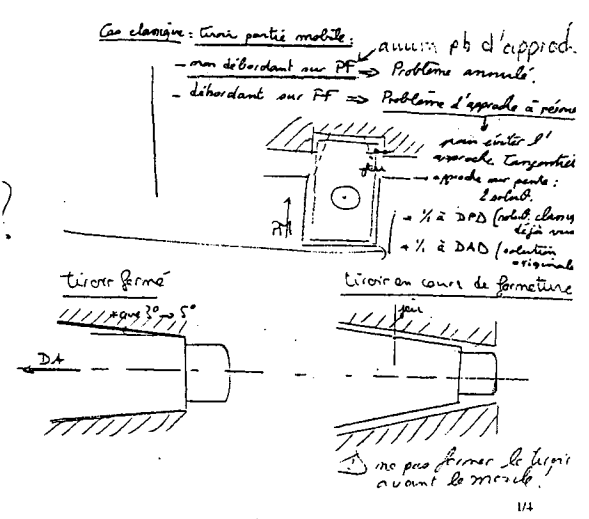 Cas classique : tiroir partie mobile :
aucun pb d'approch.
- non débordant sur PF => Problème annulé.
- débordant sur PF => Problème d'approche à résou
pour éviter l'
approche tangentiel
jeu
approche sur pente :
2 solut.
PM
+ % à DPD (solut. classiq
déjà vue
+ % à DAD (solution
originale
?
tiroir fermé
tiroir en cours de fermeture
* que 3° → 5°
jeu
DA
ne pas fermer le tiroir
avant le moule.
1/4